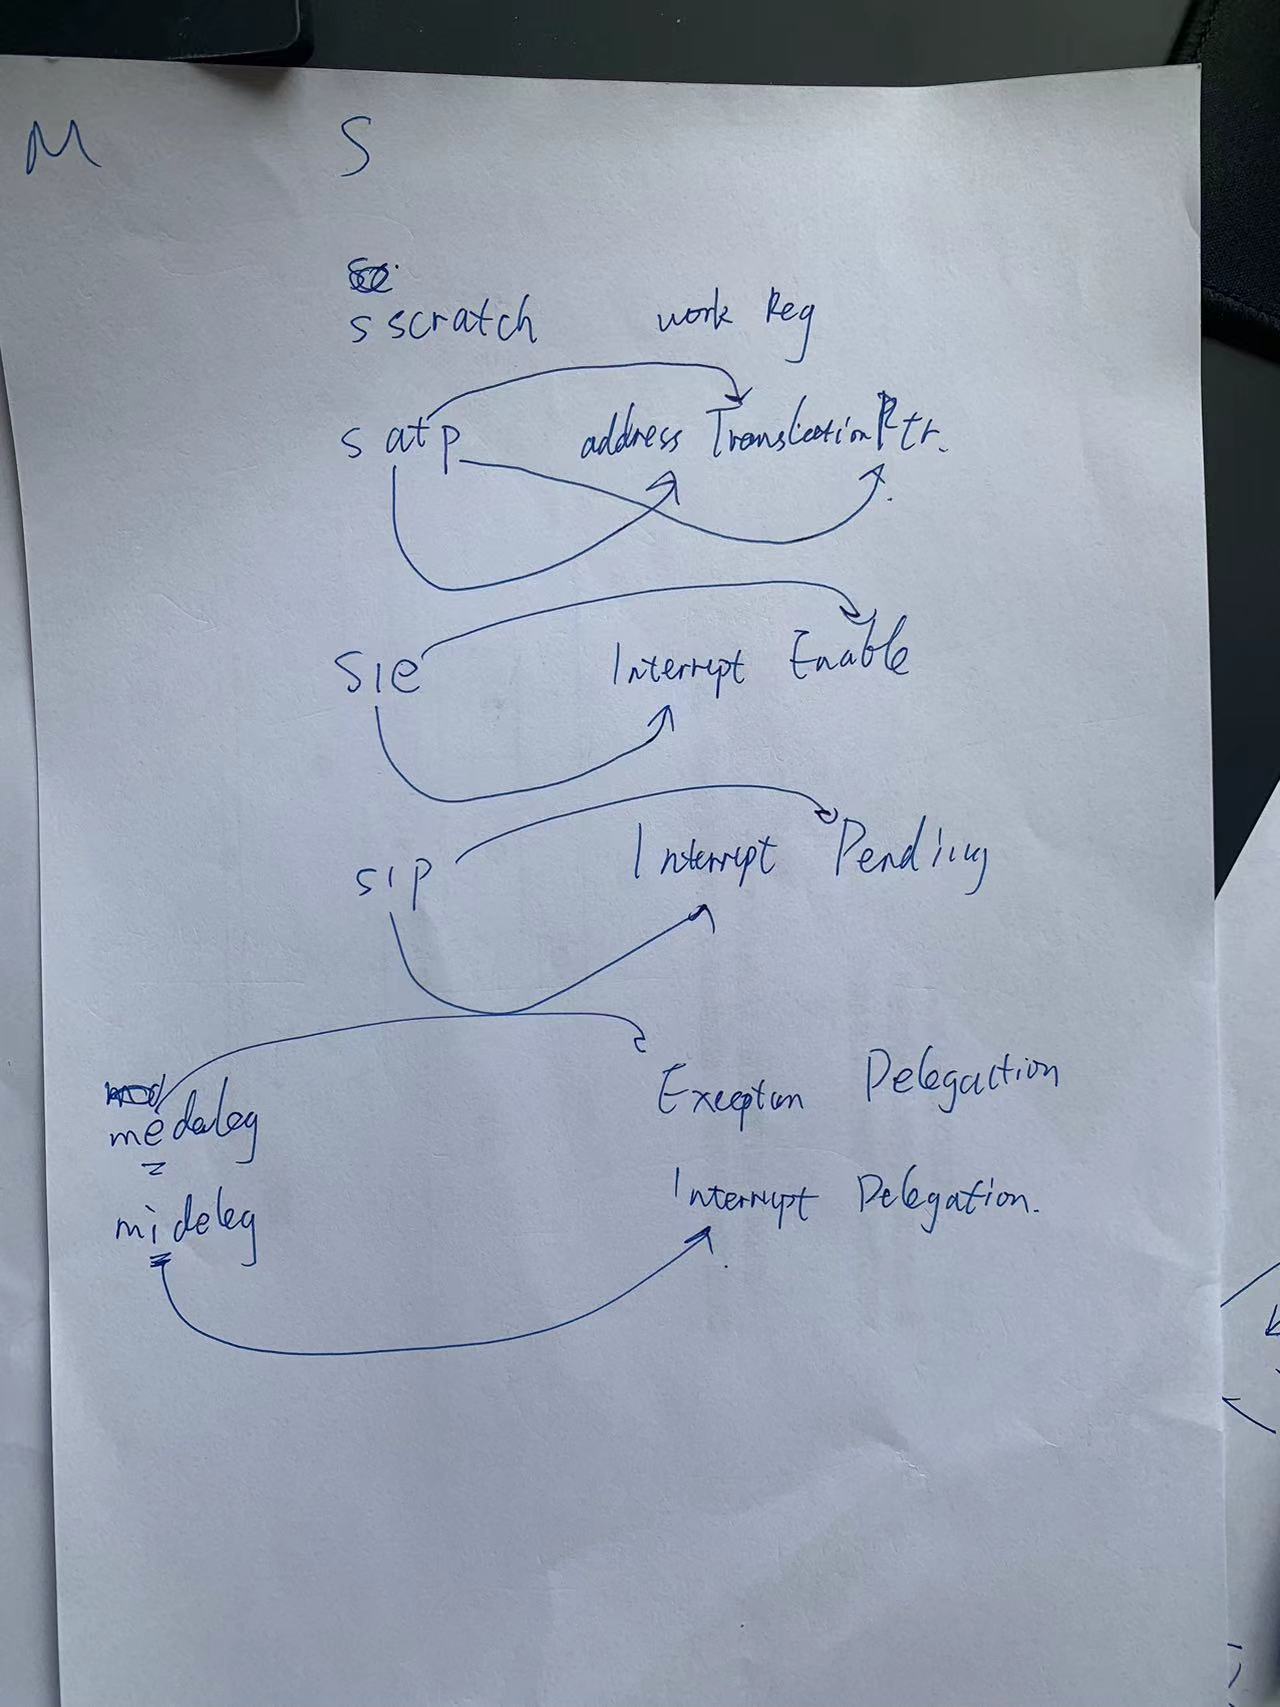 M S
sscratch work Reg
satp address Translation Ptr.
sie Interrupt Enable
sip Interrupt Pending
medeleg Exception Delegation
mideleg Interrupt Delegation.